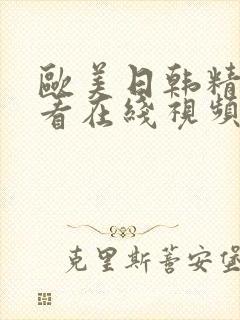 歐美日韩精
看在綫視頻
克里斯蒂安堡